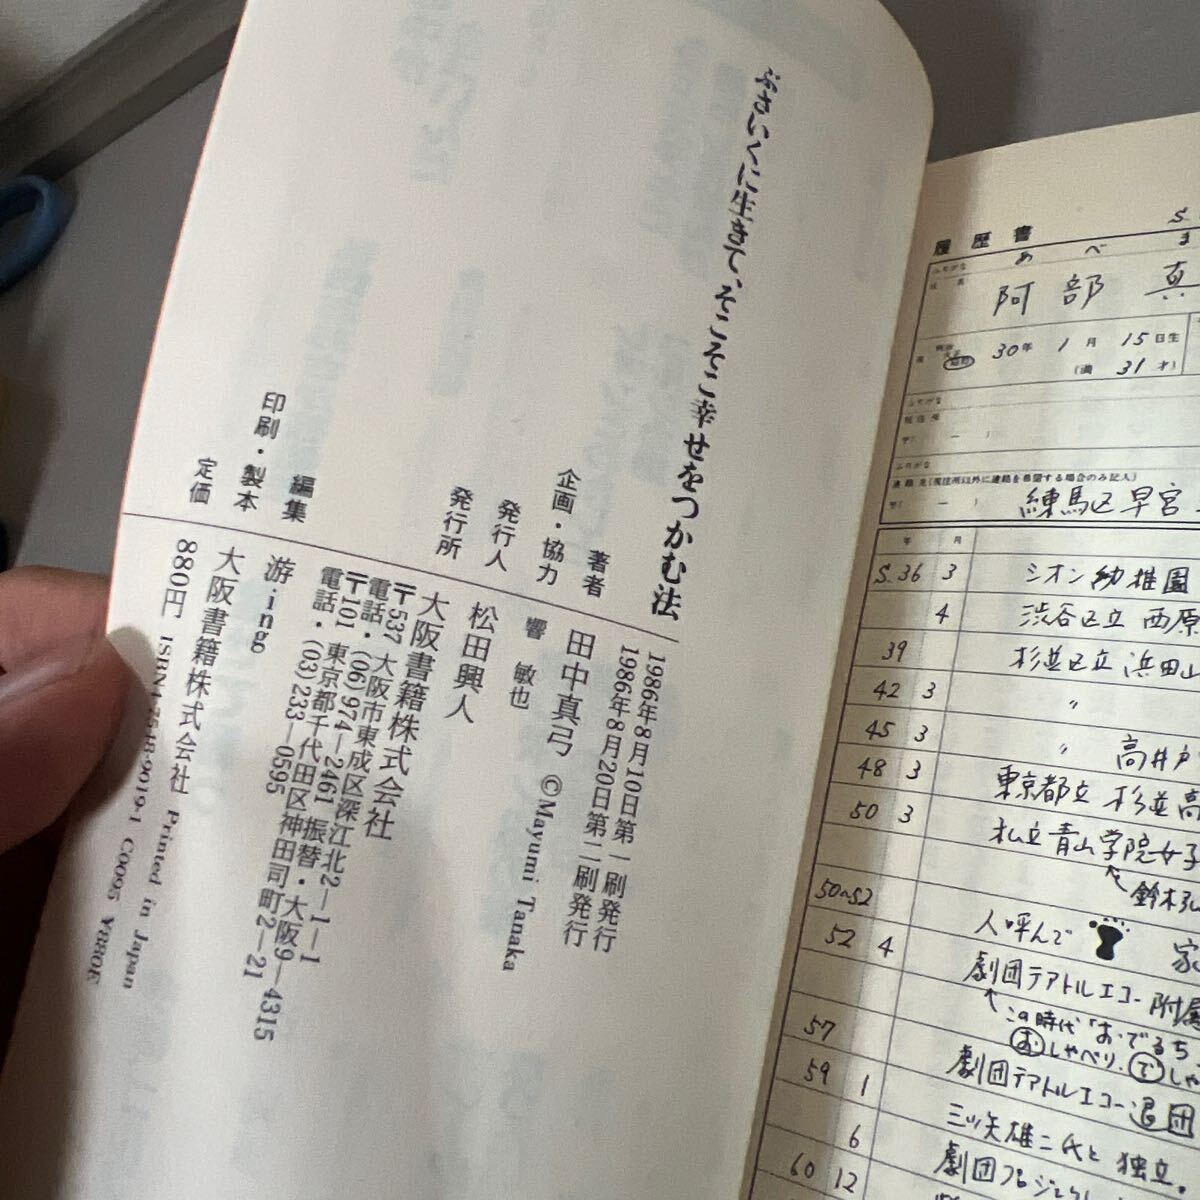 ぶさいくに生きて、そこそこ幸せをつかむ法
1986年8月10日第一刷発行
1986年8月20日第二刷発行
著者 田中真弓 ©Mayumi Tanaka
企画・協力 響 敏也
発行人 松田興人
発行所 大阪書籍株式会社
〒537 大阪市東成区深江北2―1―1
電話・(06)974―2461 振替・大阪9―4315
〒101 東京都千代田区神田司町2―21
電話・(03)233―0595
編集 游ing
印刷・製本 大阪書籍株式会社 Printed in Japan
定価 880円 9019-1 C0095 ¥880E
履歴書
ふりがな あべ ま
氏名 阿部 真
30年 1月 15日生
(満 31才)
ふりがな
現住所
〒( ― )
ふりがな
連絡先(現住所以外に連絡を希望する場合のみ記入)
〒( ― )
練馬区早宮
年 月
S.36 3 シオン幼稚園
4 渋谷区立 西原
39 杉並区立 浜田山
42 3 〃
45 3 〃 高井戸
48 3 東京都立 杉並高
50 3 私立青山学院女子
鈴木弘
50~52 人呼んで 家
52 4 劇団テアトルエコー附属
この時代「お・でるち
おしゃべり.でしゃ
57 劇団テアトルエコー退団
59 1 三ツ矢雄二代と 独立。
6 劇団プロジェクト
60 12